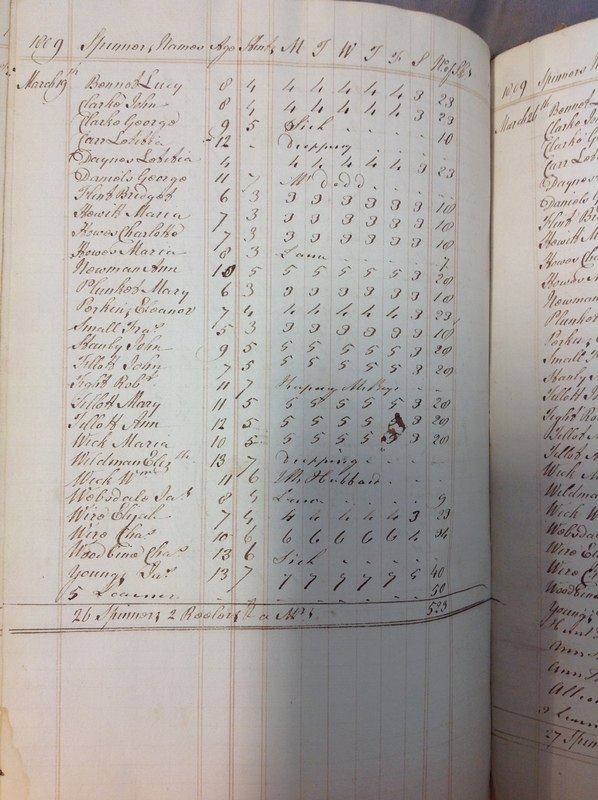 1809 Spinners Names Age Stint M T W T F S No of Sks
March 19th Bonnet Lucy 8 4 4 4 4 4 4 3 23
Clarke John 8 4 4 4 4 4 4 3 23
Clarke George 9 5 Sick - - - - 10
Carr Letitia 12 - Dupping
Daynes Letitia 4 4 4 4 4 4 3 23
Daniels George 11 7 Mr Dodd
Flint Bridget 6 3 3 3 3 3 3 3 18
Howitt Maria 7 3 3 3 3 3 3 3 18
Howes Charlotte 7 3 3 3 3 3 3 3 18
Howes Maria 8 3 Lame - - - 7
Newman Ann 10 5 5 5 5 5 5 3 28
Plunket Mary 6 3 3 3 3 3 3 3 18
Perkins Eleanor 7 4 4 4 4 4 4 3 23
Small Fras 5 3 3 3 3 3 3 3 18
Stanly John 9 5 5 5 5 5 5 3 28
Tillott John 7 5 5 5 5 5 5 3 28
Tight Robt 11 7
Tillott Mary 11 5 5 5 5 5 5 3 28
Tillott Ann 12 5 5 5 5 5 3 28
Wick Maria 10 5 5 5 5 5 5 3 28
Wildman Elizth 13 7 Dupping
Wick Wm 11 6 Mr Hubbard
Websdale Jas 8 4 Lame - - - 9
Wire Elijah 7 4 4 4 4 4 4 3 23
Wire Chas 10 6 6 6 6 6 6 4 34
Woodbine Chas 13 6 Sick
Youngs Jas 13 7 7 7 7 7 7 5 40
5 Learners - - - - - - 50
26 Spinners 2 Reelers & a Mrs 523
1809 Spinners
March 26th Bonnet
Clarke John
Clarke G
Carr Let
Daynes
Daniels G
Flint Br
Howitt M
Howes Cha
Howes M
Newman
Plunket
Small
Stanly
Tillott J
Tight Rob
Tillott M
Tillott A
Wick M
Wildma
Wick W
Websda
Wire Eli
Wire C
Woodbine
Youngs
Ann
Ann
3 Learn
27 Spin